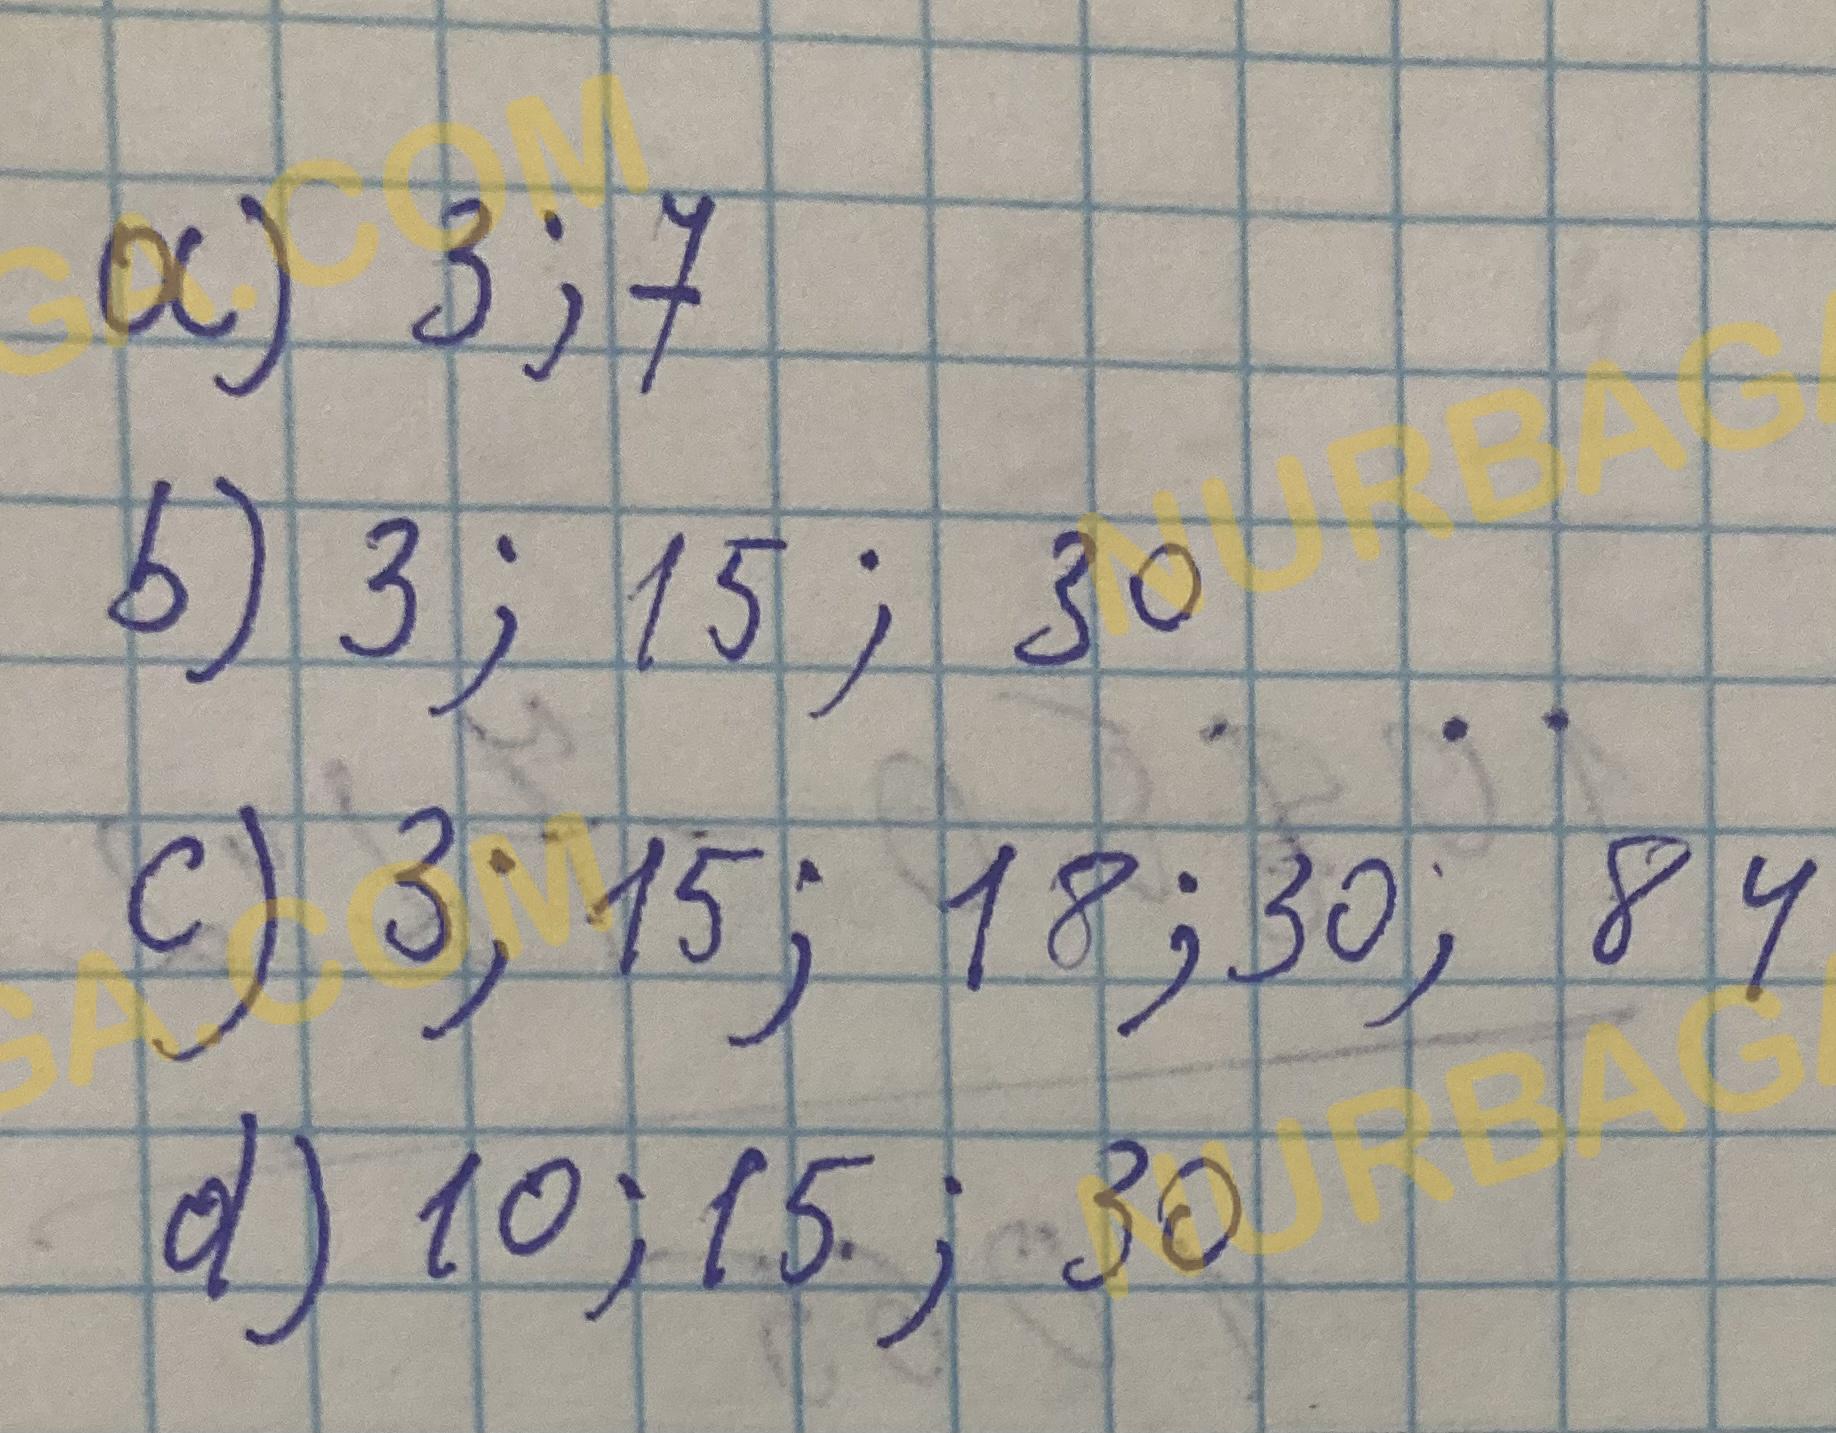 a) 3; 7
b) 3; 15; 30
c) 3; 15; 18; 30; 84
d) 10; 15; 30
GA.COM
NURBAGA
GA.COM
NURBAGA